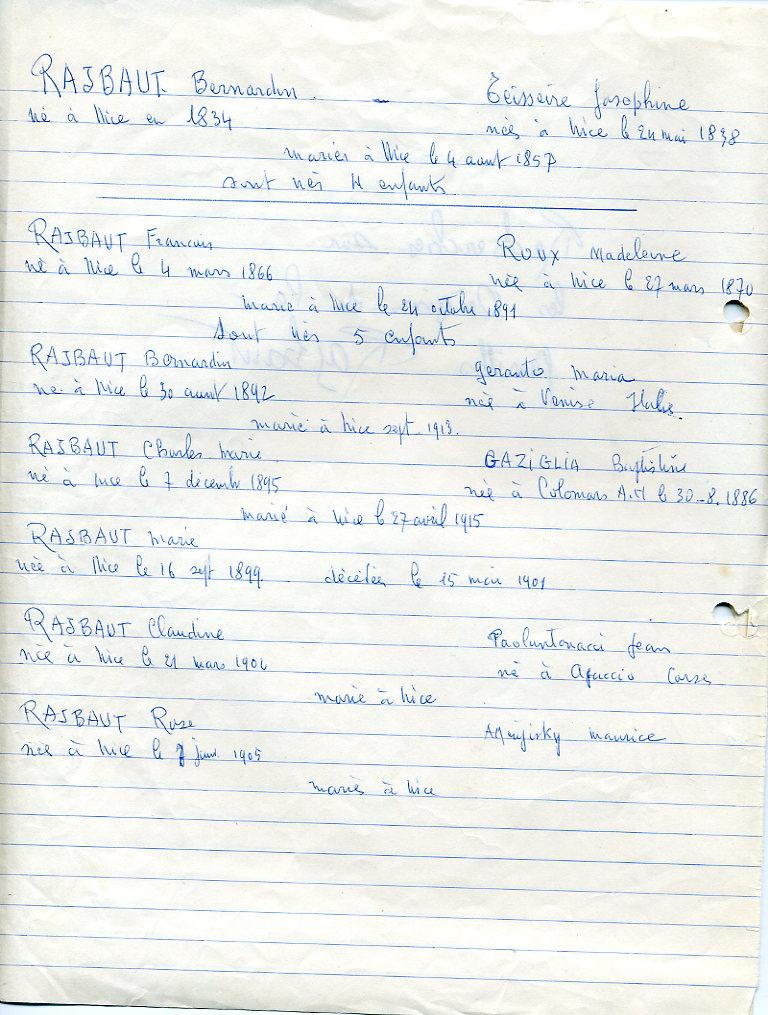 RAJBAUT Bernardin - Teisseire Josephine
né à Nice en 1834 née à Nice le 24 mai 1838
mariés à Nice le 4 aout 1857
sont nés 4 enfants
RAJBAUT Francois ROUX Madeleine
né à Nice le 4 mars 1866 née à Nice le 27 mars 1870
marié à Nice le 24 octobre 1891
sont nés 5 enfants
RAJBAUT Bernardin Geranto Maria
né à Nice le 30 aout 1892 née à Venise Italie.
marié à Nice sept. 1913.
RAJBAUT Charles marie. GAZIGLIA Baptistine
né à Nice le 7 décembre 1895 née à Colomars A.M le 30-8.1886
marié à Nice le 27 avril 1915
RAJBAUT marie
née à Nice le 16 sept 1899 décédée le 15 mai 1901
RAJBAUT Claudine Paoluntonacci Jean
née à Nice le 21 mars né à Ajaccio Corse
marié à Nice
RAJBAUT Rose maurice
née à Nice le 7 1905
mariés à Nice